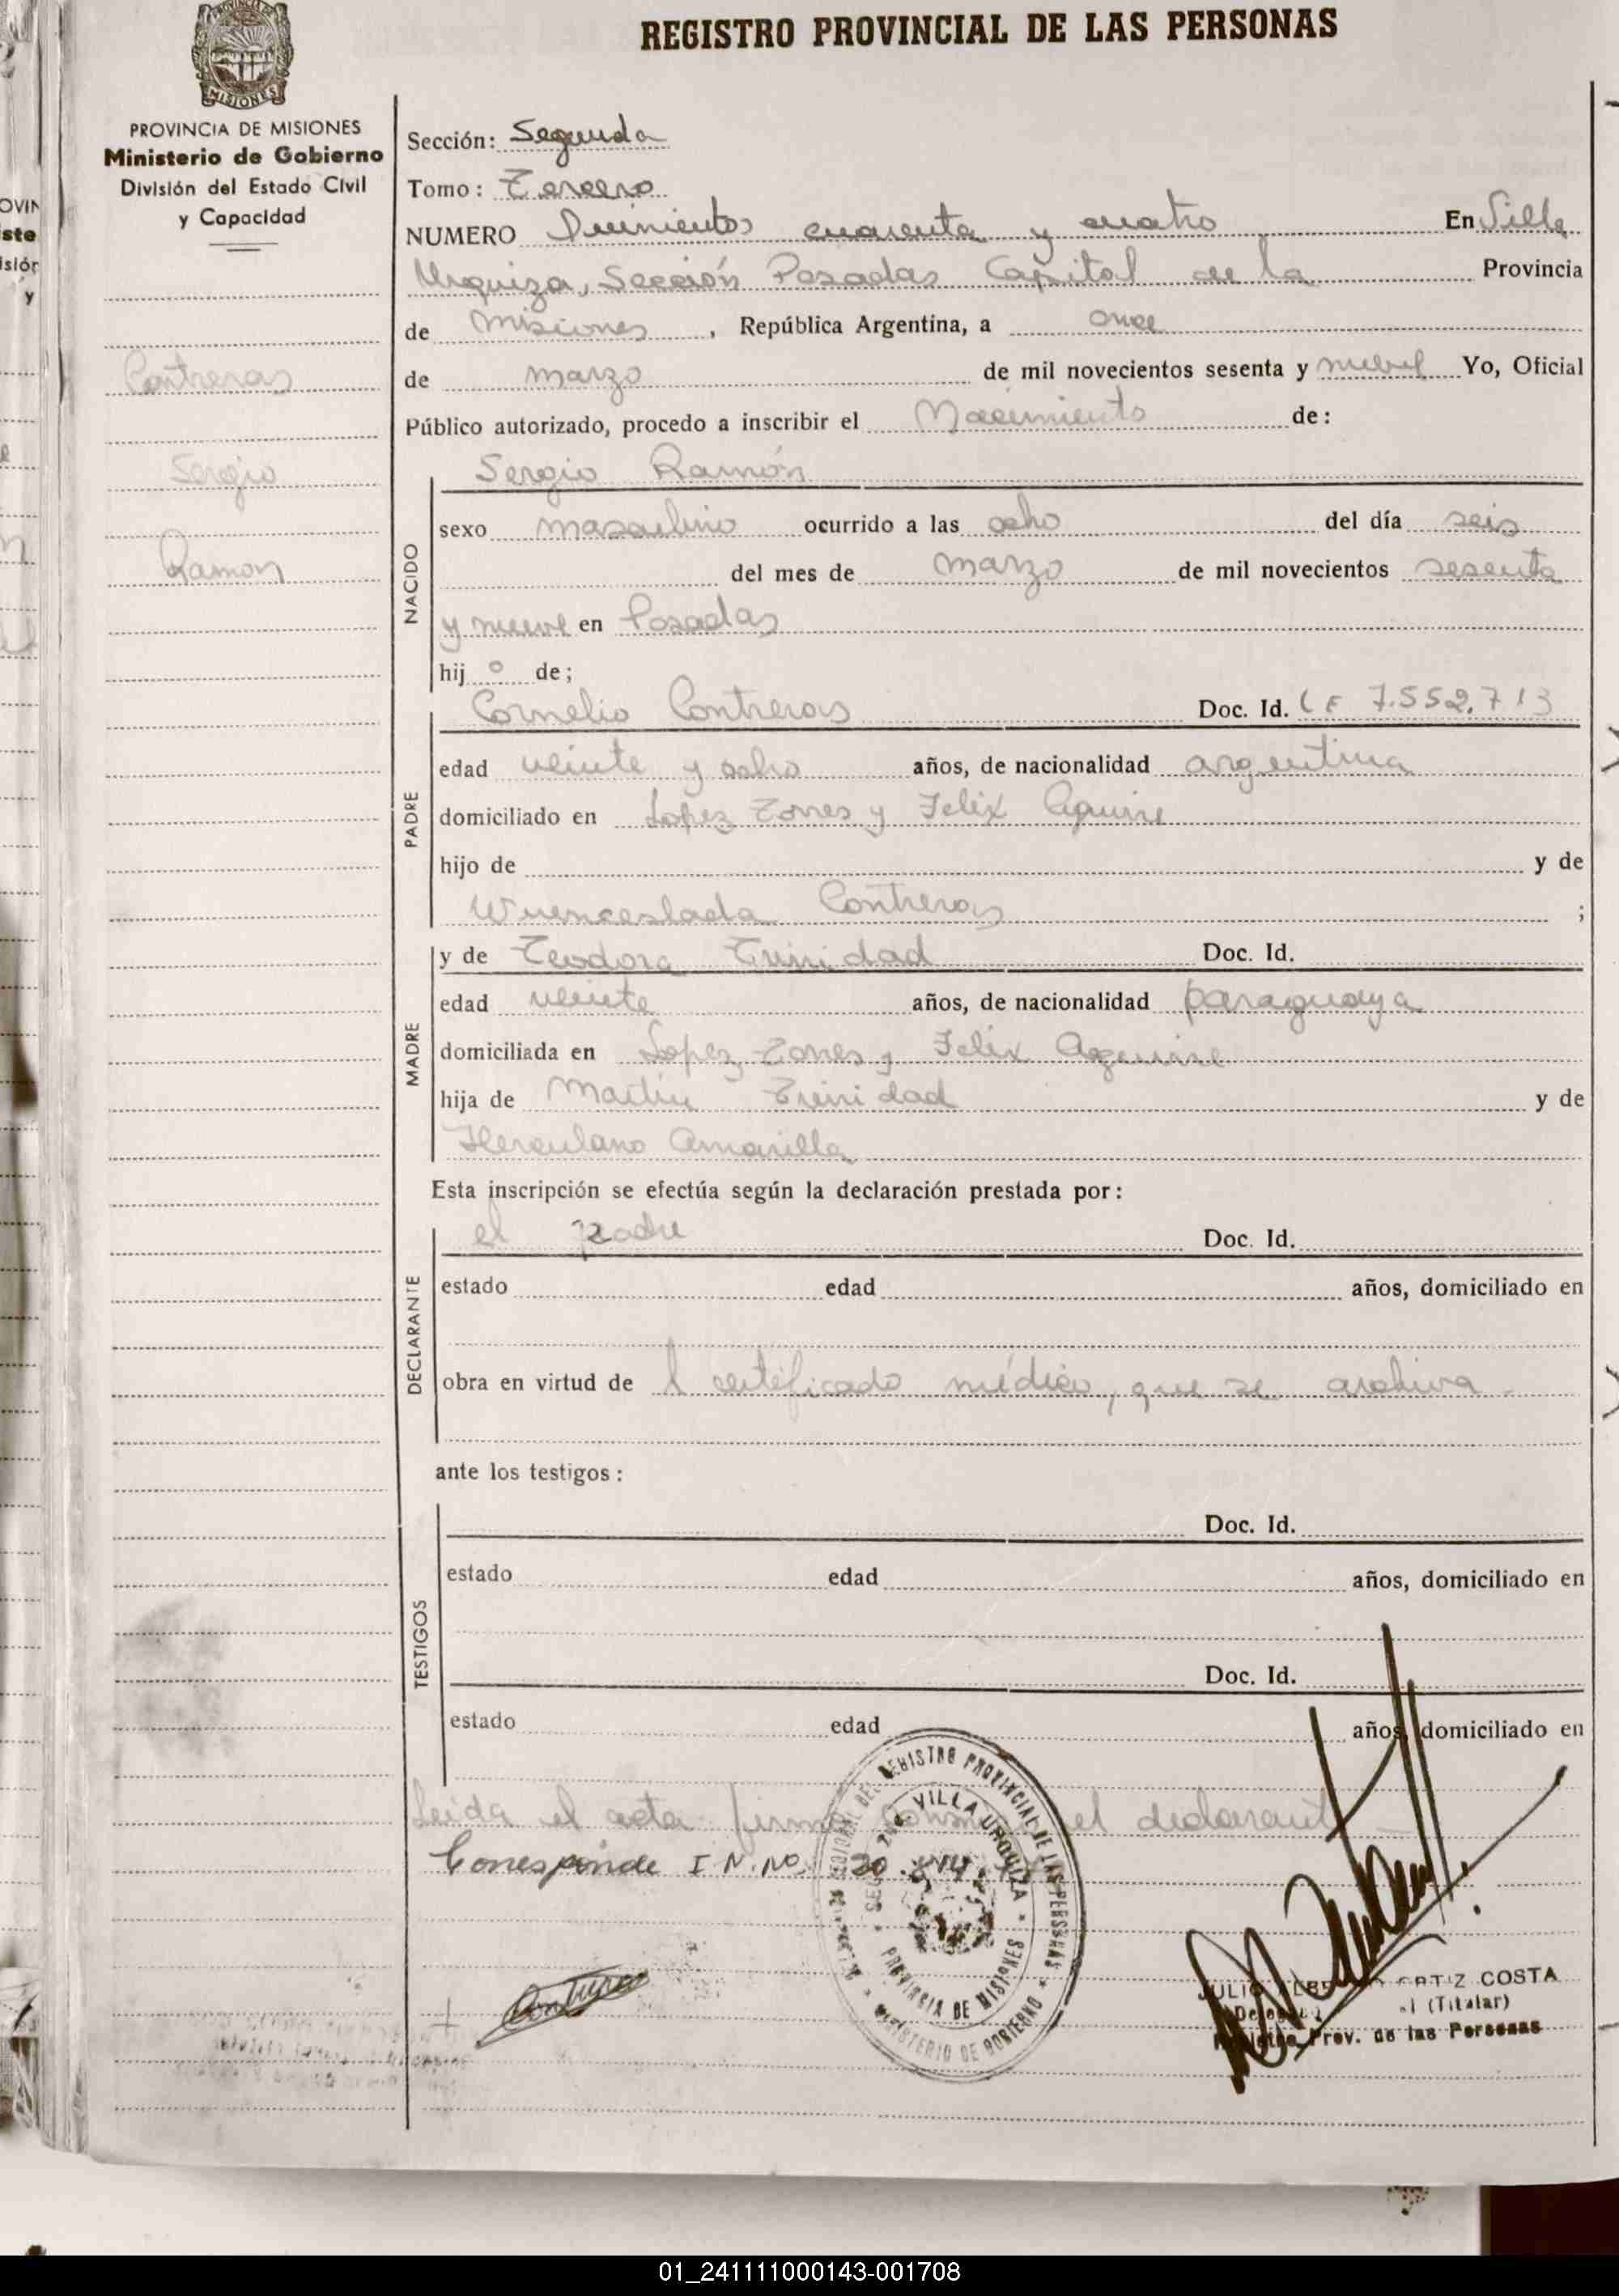 REGISTRO PROVINCIAL DE LAS PERSONAS
MISIONES
PROVINCIA DE MISIONES
Ministerio de Gobierno
División del Estado Civil
y Capacidad
Contreras
Sergio
Ramon
Sección: Segunda
Tomo: Tercero
NUMERO cuarenta y cuatro En Villa
Urquiza, Sección Posadas Capital de la Provincia
de Misiones, República Argentina, a once
de marzo de mil novecientos sesenta y nueve Yo, Oficial
Público autorizado, procedo a inscribir el Nacimiento de:
NACIDO
Sergio Ramón
sexo masculino ocurrido a las ocho del día seis
del mes de marzo de mil novecientos sesenta
y nueve en Posadas
hijo de;
PADRE
Cornelio Contreras Doc. Id. LE 7.552.713
edad veinte y ocho años, de nacionalidad argentina
domiciliado en Lopez Torres y Felix Aguirre
hijo de y de
Wuenceslada Contreras ;
MADRE
y de Teodora Trinidad Doc. Id.
edad veinte años, de nacionalidad paraguaya
domiciliada en Lopez Torres y Felix Aguirre
hija de Martin Trinidad y de
Herculano Amarilla
Esta inscripción se efectúa según la declaración prestada por:
DECLARANTE
el padre Doc. Id.
estado edad años, domiciliado en
obra en virtud de l certificado médico, que se archiva
ante los testigos:
TESTIGOS
Doc. Id.
estado edad años, domiciliado en
Doc. Id.
estado edad años, domiciliado en
Leida el acta firma el declarante
Corresponde I.N.NO
REGISTRO PROVINCIAL DE LAS PERSONAS
VILLA URQUIZA
PROVINCIA DE MISIONES
MINISTERIO DE GOBIERNO
JULIO ORTIZ COSTA
(Titular)
Prov. de las Personas
01_241111000143-001708